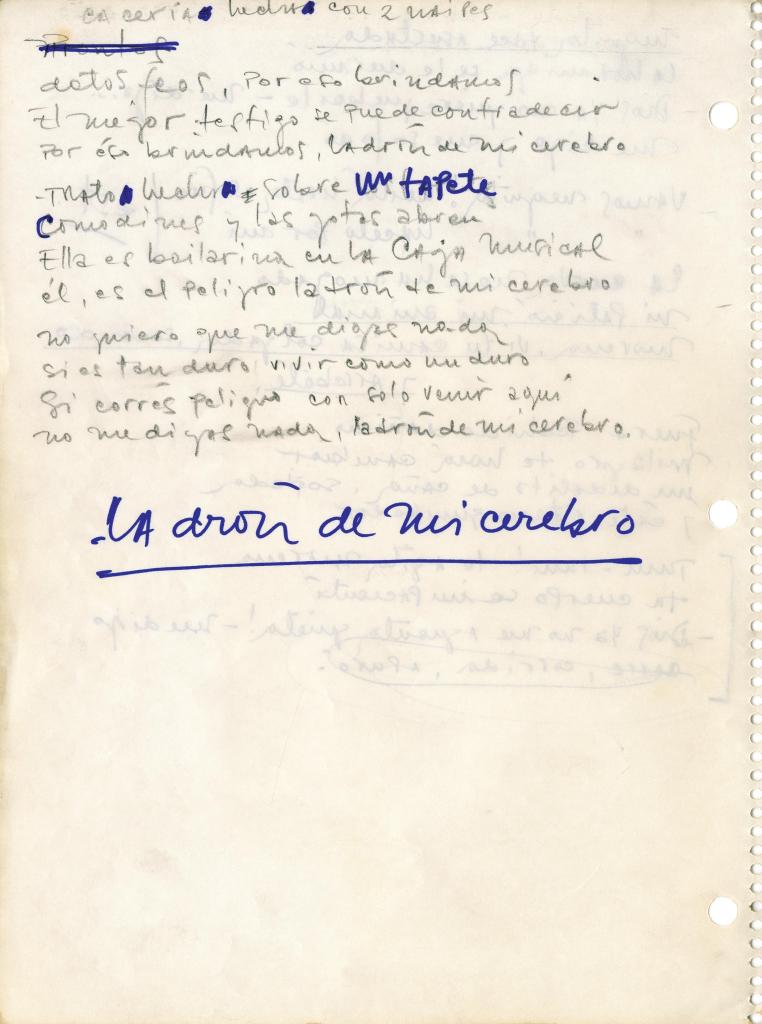 cacería hecha con 2 naipes
datos feos, Por eso brindamos
El mejor testigo se puede contradecir
Por éso brindamos, ladrón de mi cerebro
-Trato hecho sobre un tapete
Comodines y las jotas abren
Ella es bailarina en la Caja Musical
él, es el peligro ladrón de mi cerebro
no quiero que me digas nada
si es tan duro vivir como un duro
Si corrés peligro con solo venir aquí
no me digas nada, ladrón de mi cerebro.
.ladrón de mi cerebro